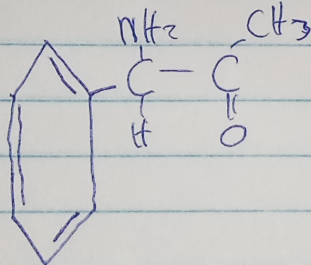 NH2 CH3
C — C
H O